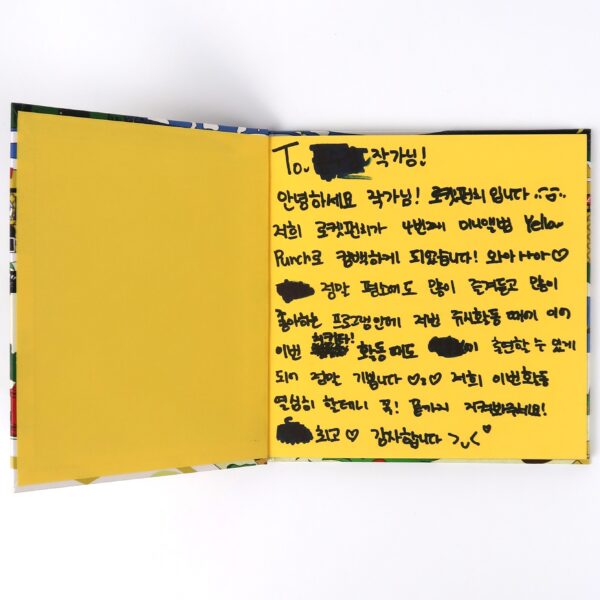 To. 작가님!
안녕하세요 작가님! 로켓펀치 입니다
저희 로켓펀치가 4번째 미니앨범 Yellow
Punch로 컴백하게 되었습니다! 와아아아♡
정말 평소에도 많이 즐겨듣고 많이
좋아하는 프로그램인데 저번 쥬시활동 때에 이어
이번 치키타! 활동때도 출연할 수 있게
되어 정말 기쁩니다 저희 이번활동
열심히 할테니 꼭! 끝까지 지켜봐주세요!
최고 ♡ 감사합니다